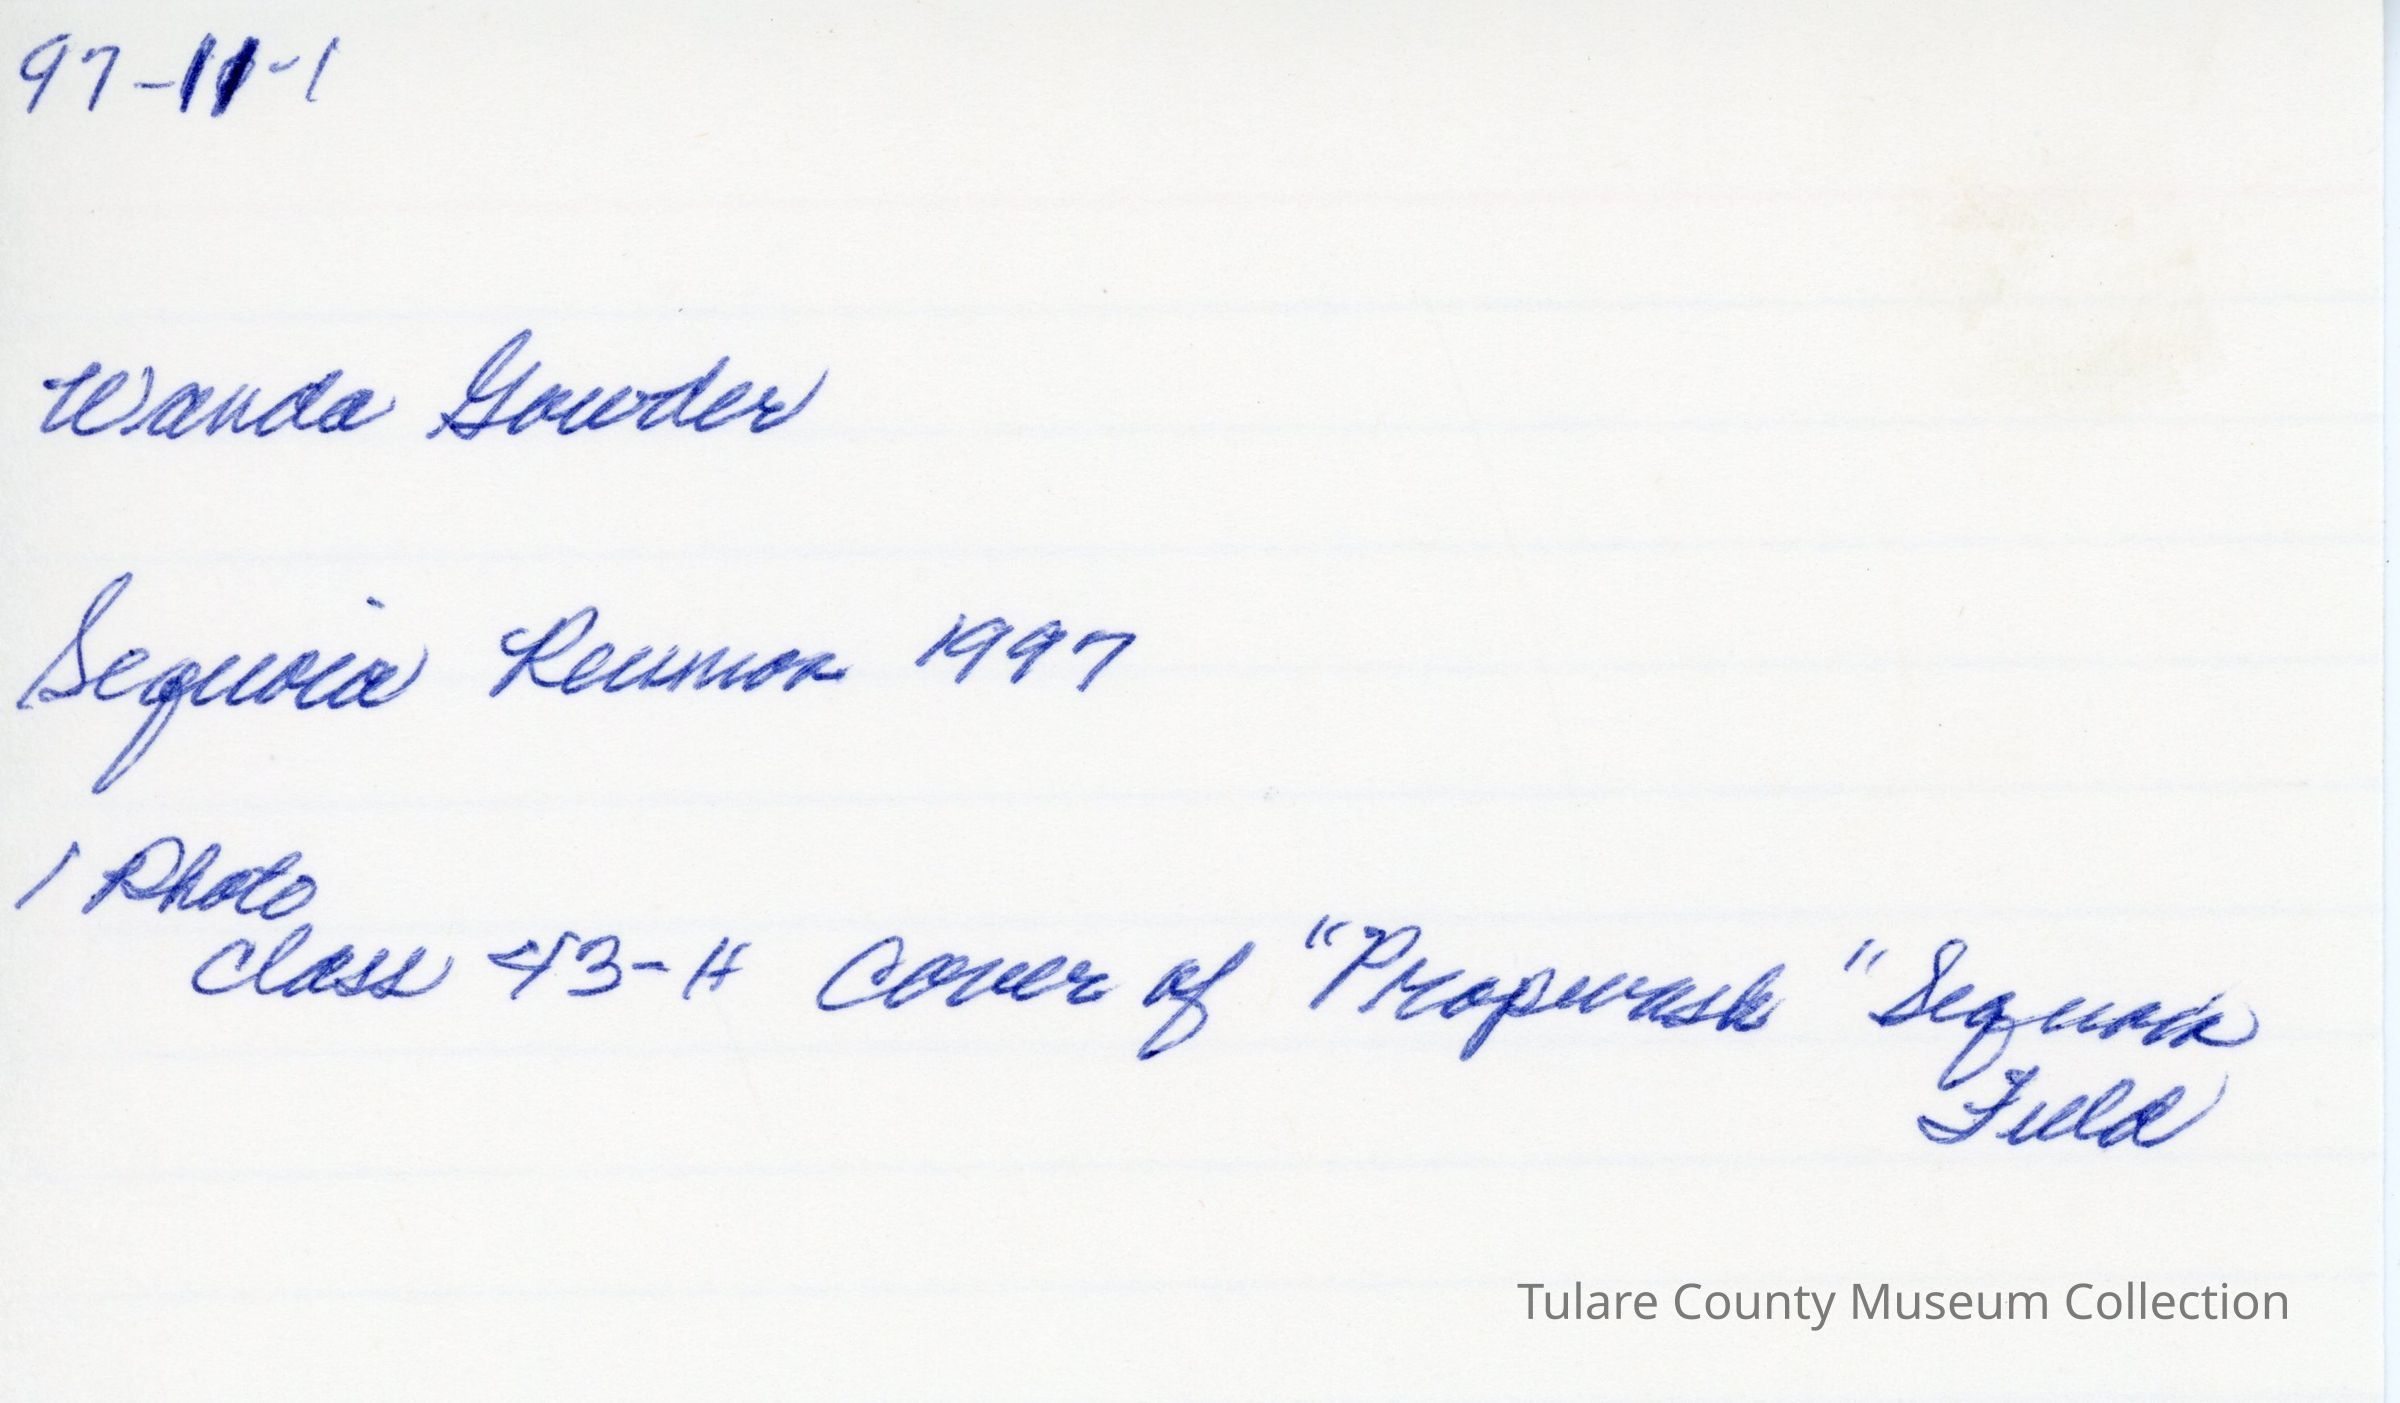 97-11-1
Wanda Gowder
Sequoia Reunion 1997
1 Photo
Class 43-H Cover of "Propwash" Sequoia
Field
Tulare County Museum Collection